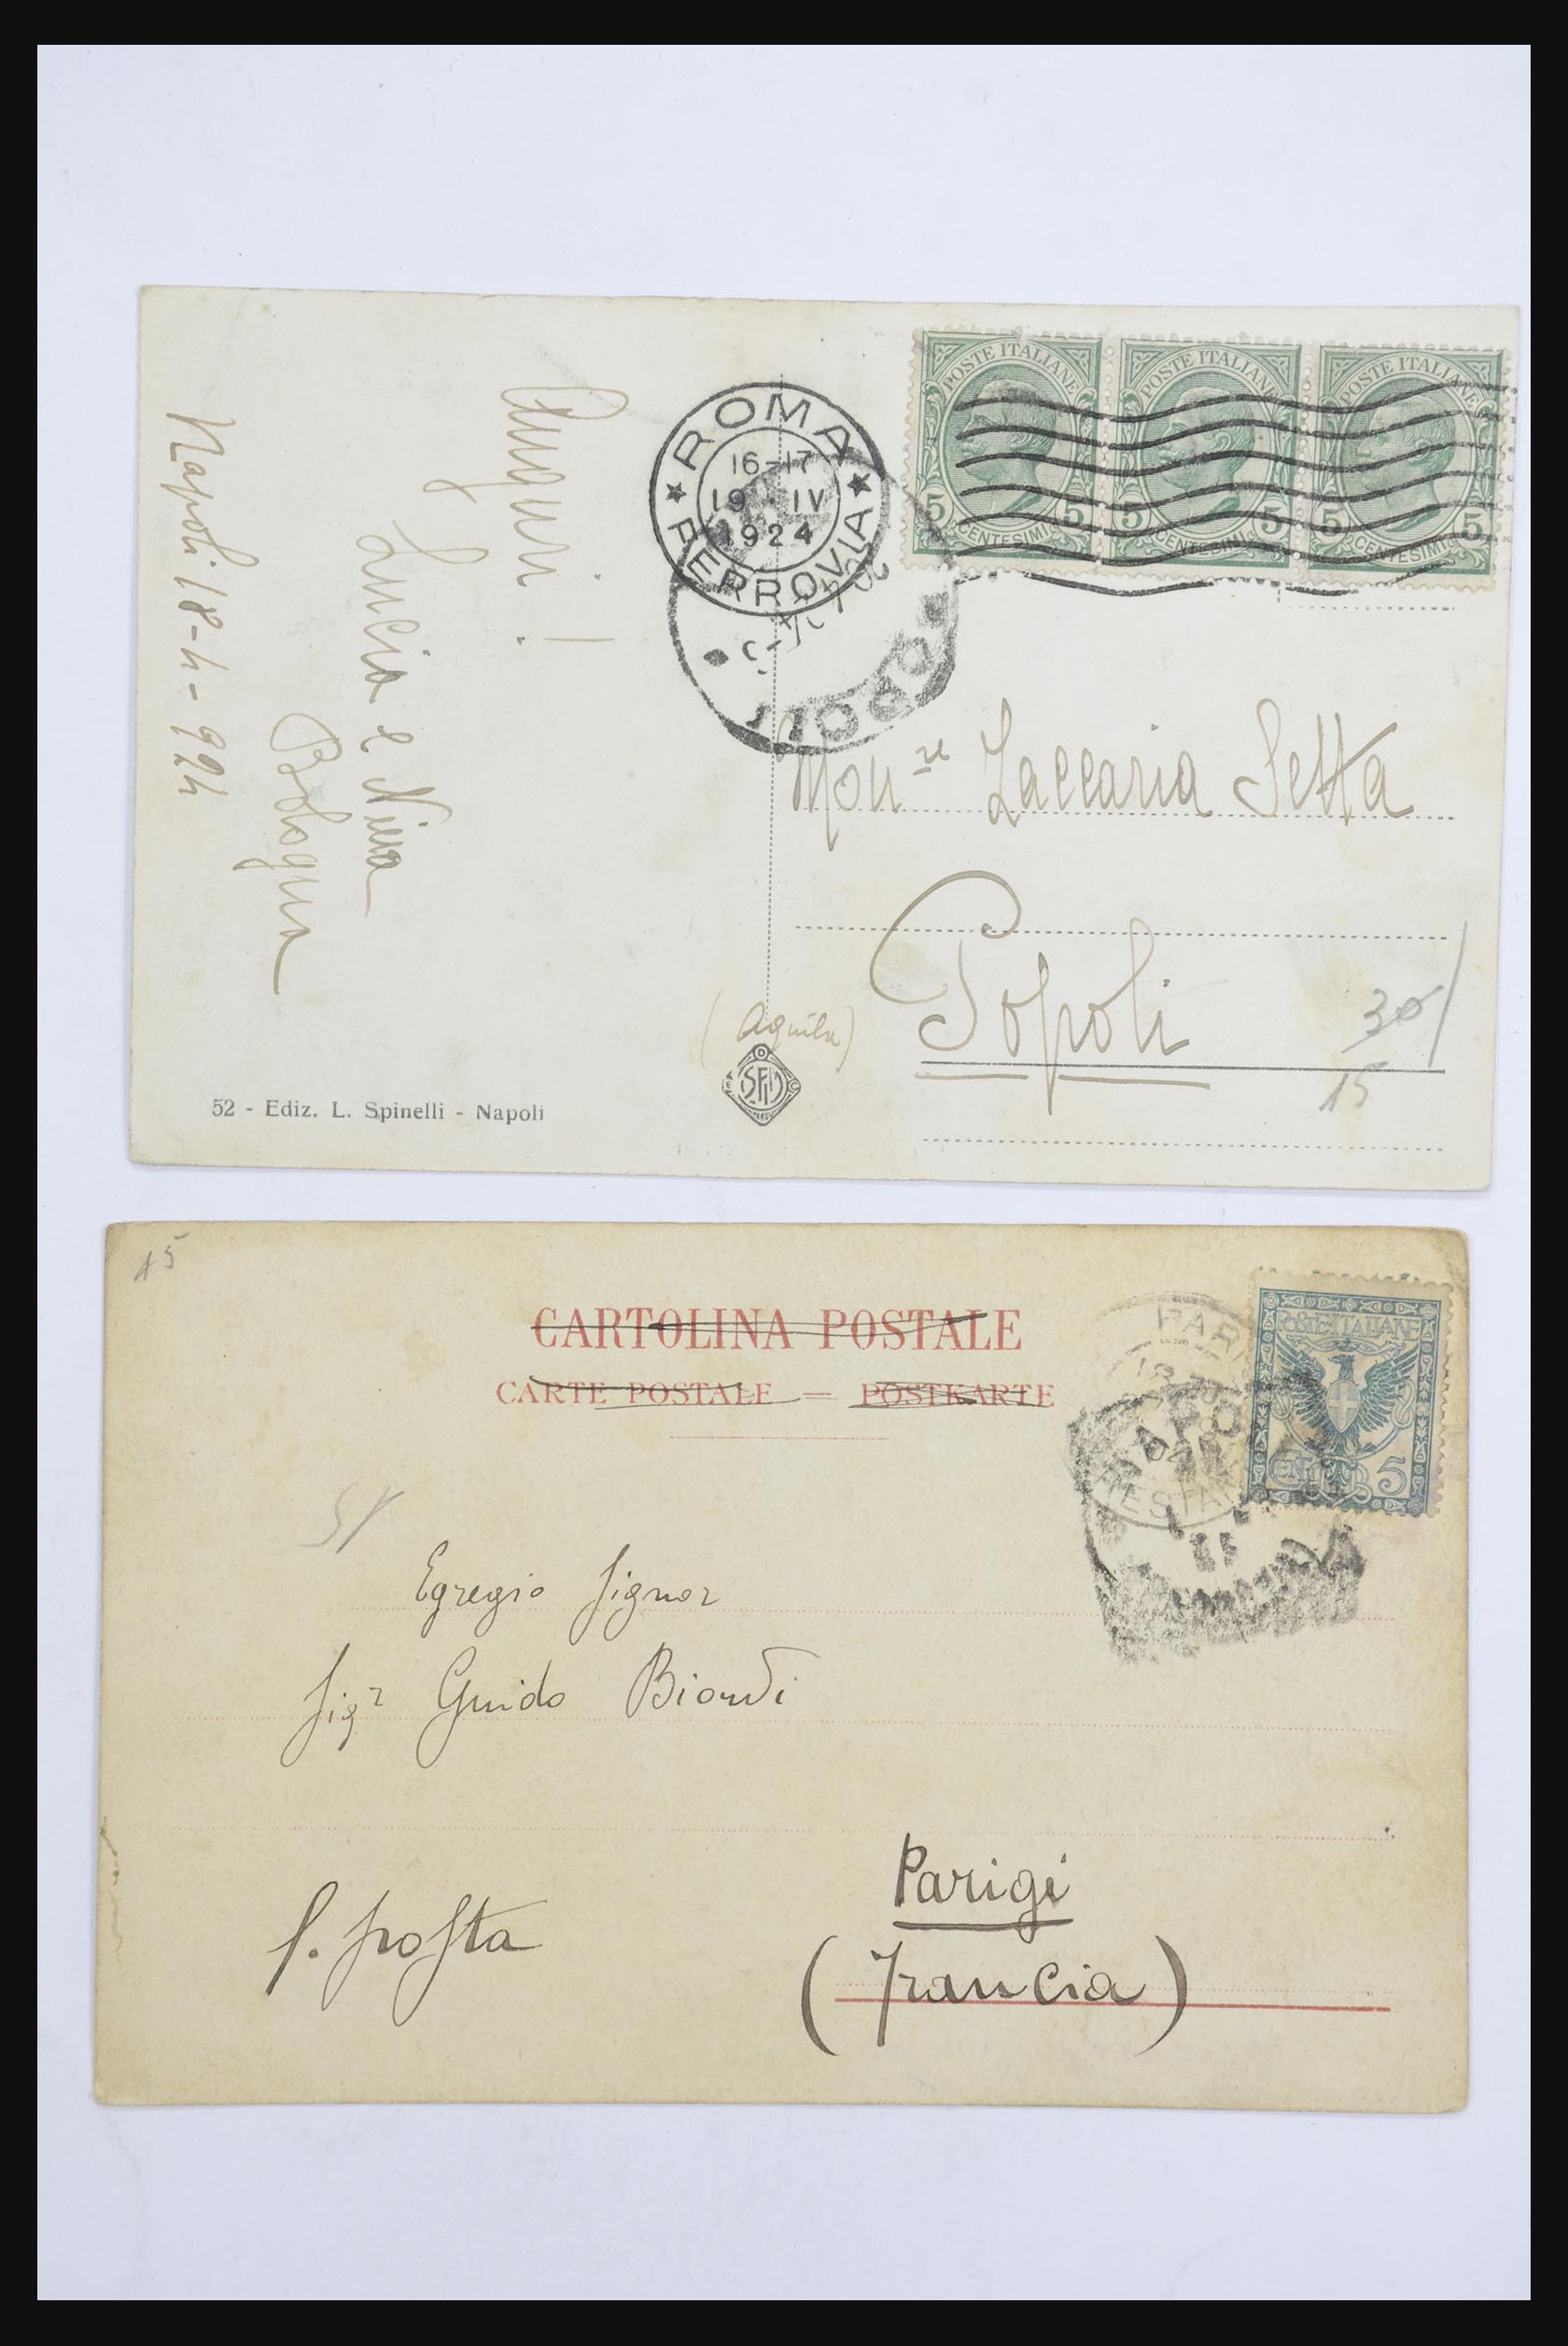 Auguri!
Lucia e Nina
Bologna
Napoli 18-4-924
ROMA
16-17
19 · IV
1924
FERROVIA
POSTE ITALIANE
5 CENTESIMI 5
POSTE ITALIANE
5 CENTESIMI 5
POSTE ITALIANE
5 CENTESIMI 5
POPOLI
Zaccaria Setta
Popoli
(Aquila)
30
15
52 - Ediz. L. Spinelli - Napoli
15
CARTOLINA POSTALE
CARTE POSTALE — POSTKARTE
POSTE ITALIANE
CENT 5
Egregio Signor
Sigr Guido Biondi
f. posta
Parigi
(Francia)